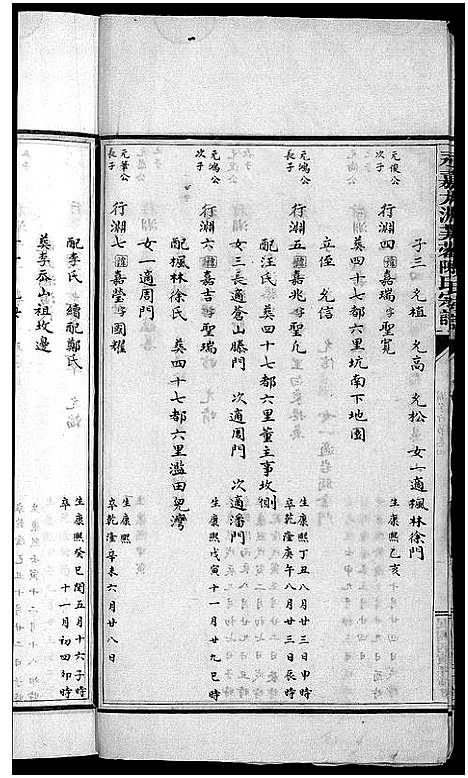 子三 允植 允高 允松 女一適楓林徐門
元俊公
次子
行淵四 諱嘉瑞 字聖寬
生康熙乙亥
葬四十七都六里坑南下地園
元鴻公
長子
行淵五 諱嘉兆 字聖九
生康熙丁丑八月廿三日申時
卒乾隆庚午八月廿三日辰時
配汪氏 葬四十七都六里董主事坟側
立侄 允信
女三長適蒼山滕門 次適周門 次適潘門
元鴻公
次子
行淵六 諱嘉吉 字聖瑞
生康熙戊寅十一月廿九巳時
配楓林徐氏 葬四十七都六里濫田兒灣
女一適周門
元華公
長子
行淵七 諱嘉瑩 字國耀
生康熙
卒乾隆辛未六月廿八日
配李氏 續配鄭氏
生康熙癸巳閏五月十六子時
卒 十一月初四卯時
葬李岙山祖坟邊